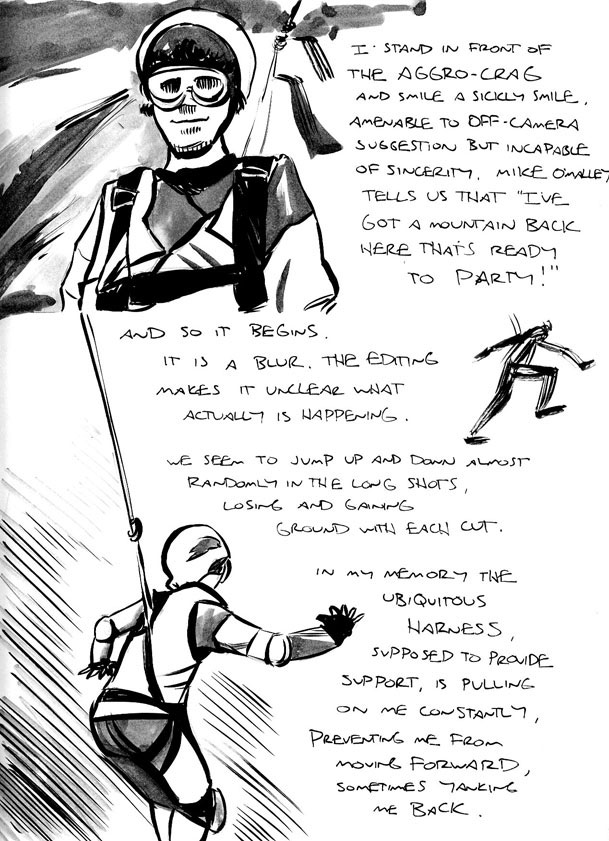 I STAND IN FRONT OF
THE AGGRO-CRAG
AND SMILE A SICKLY SMILE,
AMENABLE TO OFF-CAMERA
SUGGESTION BUT INCAPABLE
OF SINCERITY. MIKE O'MALLEY
TELLS US THAT "I'VE
GOT A MOUNTAIN BACK
HERE THAT'S READY
TO PARTY!"
AND SO IT BEGINS.
IT IS A BLUR. THE EDITING
MAKES IT UNCLEAR WHAT
ACTUALLY IS HAPPENING.
WE SEEM TO JUMP UP AND DOWN ALMOST
RANDOMLY IN THE LONG SHOTS,
LOSING AND GAINING
GROUND WITH EACH CUT.
IN MY MEMORY THE
UBIQUITOUS
HARNESS,
SUPPOSED TO PROVIDE
SUPPORT, IS PULLING
ON ME CONSTANTLY,
PREVENTING ME FROM
MOVING FORWARD,
SOMETIMES YANKING
ME BACK.